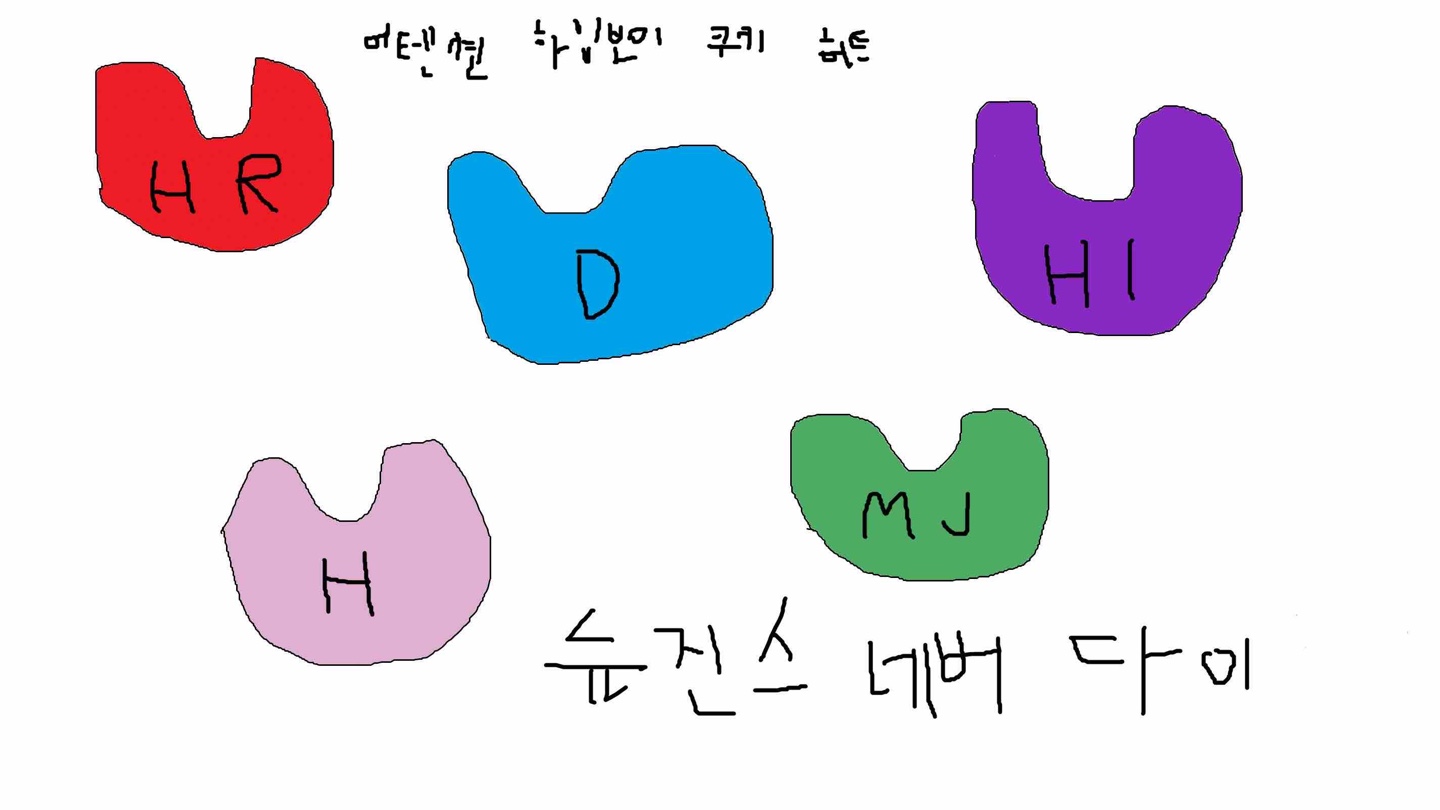 어텐션 하입번이 쿠키 허트
HR
D
HI
H
MJ
뉴진스 네버 다이